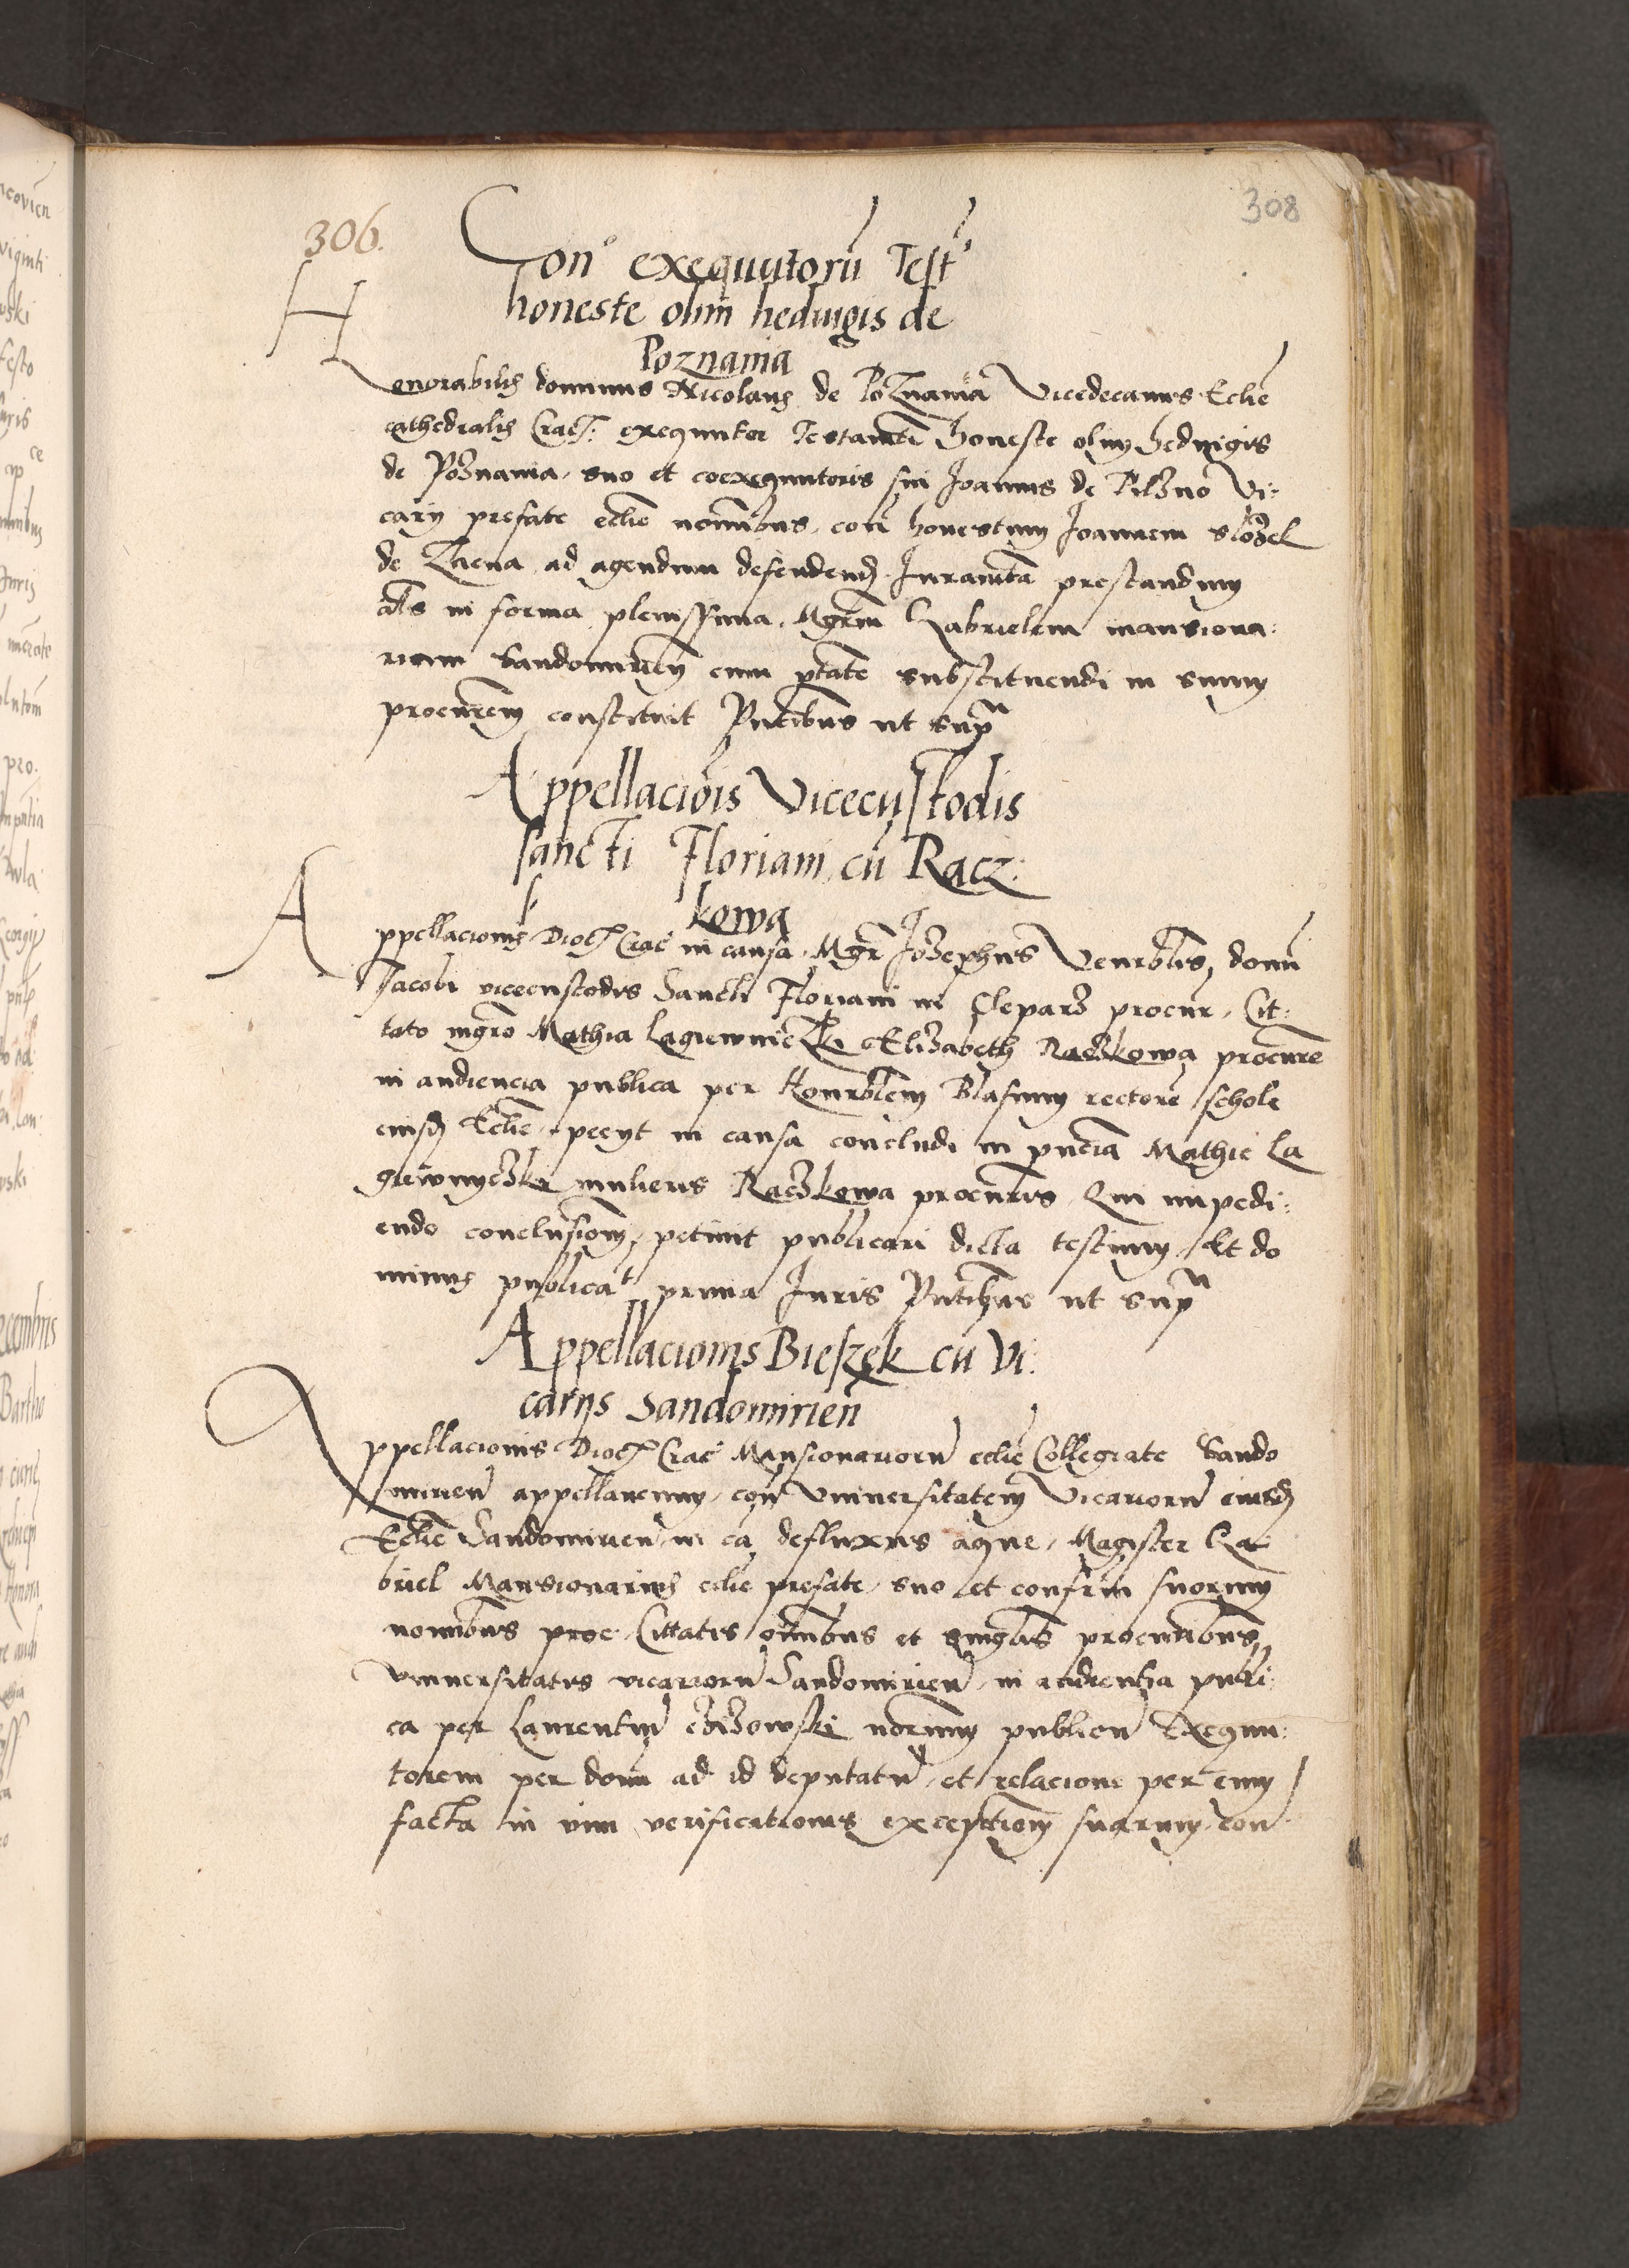 308
306.
Con° exequutorū Test
honeste olim heduigis de
Poznania
H
Venorabilis dominus Nicolaus de Poznania Vicedecanus Eclie
cathedralis Crac: exequutor Testamti honeste olim Heduigis
de Poznania, suo et coexequutoris sui Joannis de Pilzno Vi:
carij prefate eclie nominibus, con honestum Joannem
de ad agendum defendend Juramta prestandum
als in forma plenissima, Mgrm Gabrielem mansiona:
rium Sandomirien cum ptate substituendi in suum
procurem constituit Pntibus ut sup
Appellaciois Vicecustodis
sancti Floriani cū Racz:
kowa
Appellacionis Dioc Crac in causa, Mgr Jozephus Venrblis, domi
Jacobi vicecustodis Sancti Floriani in Cleparz procur, Cit:
tato mgro Mathia Lagiewniczki Elizabeth Raczkowa procure
in audiencia publica per Honrblem Blasium rectore schole
eiusd Eclie, pecyt in causa concludi in pncia Mathie La
giewnyczki mulieris Raczkowa procuris, Qui impedi:
endo conclusiom, petiuit publicari dicta testium, Et do
minus publicat prima Juris Pntibus ut sup
Appellacionis Bieszek cū Vi:
carijs Sandomirien
Appellacionis Dioc Crac Mansionariorū eclie Collegiate Sando
mirien appellancium, con Vniuersitatem Vicariorū eiusd
Eclie Sandomirien, in ca defluxus aque, Magister Ga
briel Mansionarius eclie prefate, suo et confrm suorum
nominibus proc, Cittatis omibus et singlis procuribus
Vniuersitatis vicariorū Sandomirien, in audientia publi:
ca per Laurentiū norium publicū Exequu:
torem per dom ad id deputatū, et relacione per eum
facta in vim verificationis exceptiom suarum, con